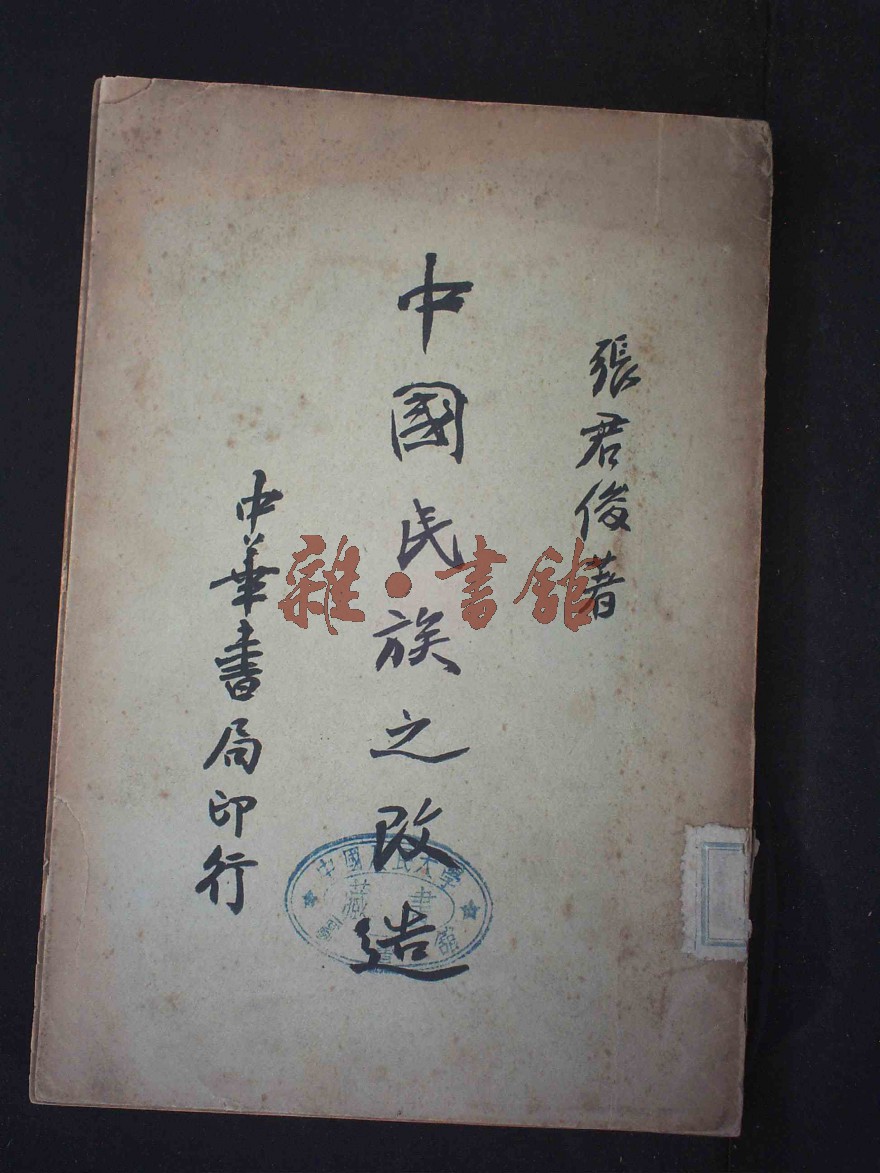 張君俊著
中國民族之改造
中華書局印行
雜·書館
中國人民大學
藏書
圖書館